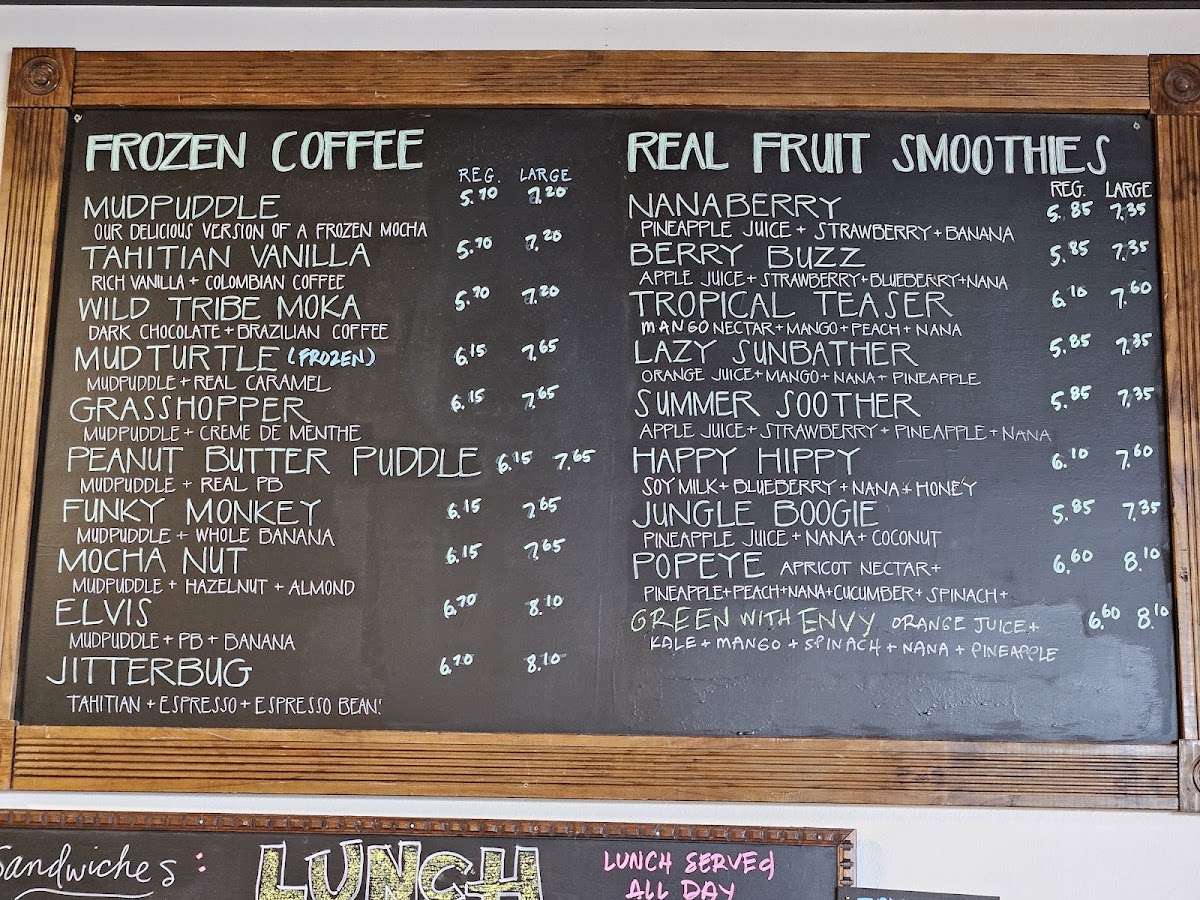 FROZEN COFFEE
REG. LARGE
MUDPUDDLE 5.70 7.20
OUR DELICIOUS VERSION OF A FROZEN MOCHA
TAHITIAN VANILLA 5.70 7.20
RICH VANILLA + COLOMBIAN COFFEE
WILD TRIBE MOKA 5.70 7.20
DARK CHOCOLATE + BRAZILIAN COFFEE
MUDTURTLE (FROZEN) 6.15 7.65
MUDPUDDLE + REAL CARAMEL
GRASSHOPPER 6.15 7.65
MUDPUDDLE + CREME DE MENTHE
PEANUT BUTTER PUDDLE 6.15 7.65
MUDPUDDLE + REAL PB
FUNKY MONKEY 6.15 7.65
MUDPUDDLE + WHOLE BANANA
MOCHA NUT 6.15 7.65
MUDPUDDLE + HAZELNUT + ALMOND
ELVIS 6.70 8.10
MUDPUDDLE + PB + BANANA
JITTERBUG 6.70 8.10
TAHITIAN + ESPRESSO + ESPRESSO BEAN!
REAL FRUIT SMOOTHIES
REG. LARGE
NANABERRY 5.85 7.35
PINEAPPLE JUICE + STRAWBERRY + BANANA
BERRY BUZZ 5.85 7.35
APPLE JUICE + STRAWBERRY + BLUEBERRY + NANA
TROPICAL TEASER 6.10 7.60
MANGO NECTAR + MANGO + PEACH + NANA
LAZY SUNBATHER 5.85 7.35
ORANGE JUICE + MANGO + NANA + PINEAPPLE
SUMMER SOOTHER 5.85 7.35
APPLE JUICE + STRAWBERRY + PINEAPPLE + NANA
HAPPY HIPPY 6.10 7.60
SOY MILK + BLUEBERRY + NANA + HONEY
JUNGLE BOOGIE 5.85 7.35
PINEAPPLE JUICE + NANA + COCONUT
POPEYE APRICOT NECTAR + 6.60 8.10
PINEAPPLE + PEACH + NANA + CUCUMBER + SPINACH +
GREEN WITH ENVY ORANGE JUICE + 6.60 8.10
KALE + MANGO + SPINACH + NANA + PINEAPPLE
Sandwiches :
LUNCH
LUNCH SERVED
ALL DAY